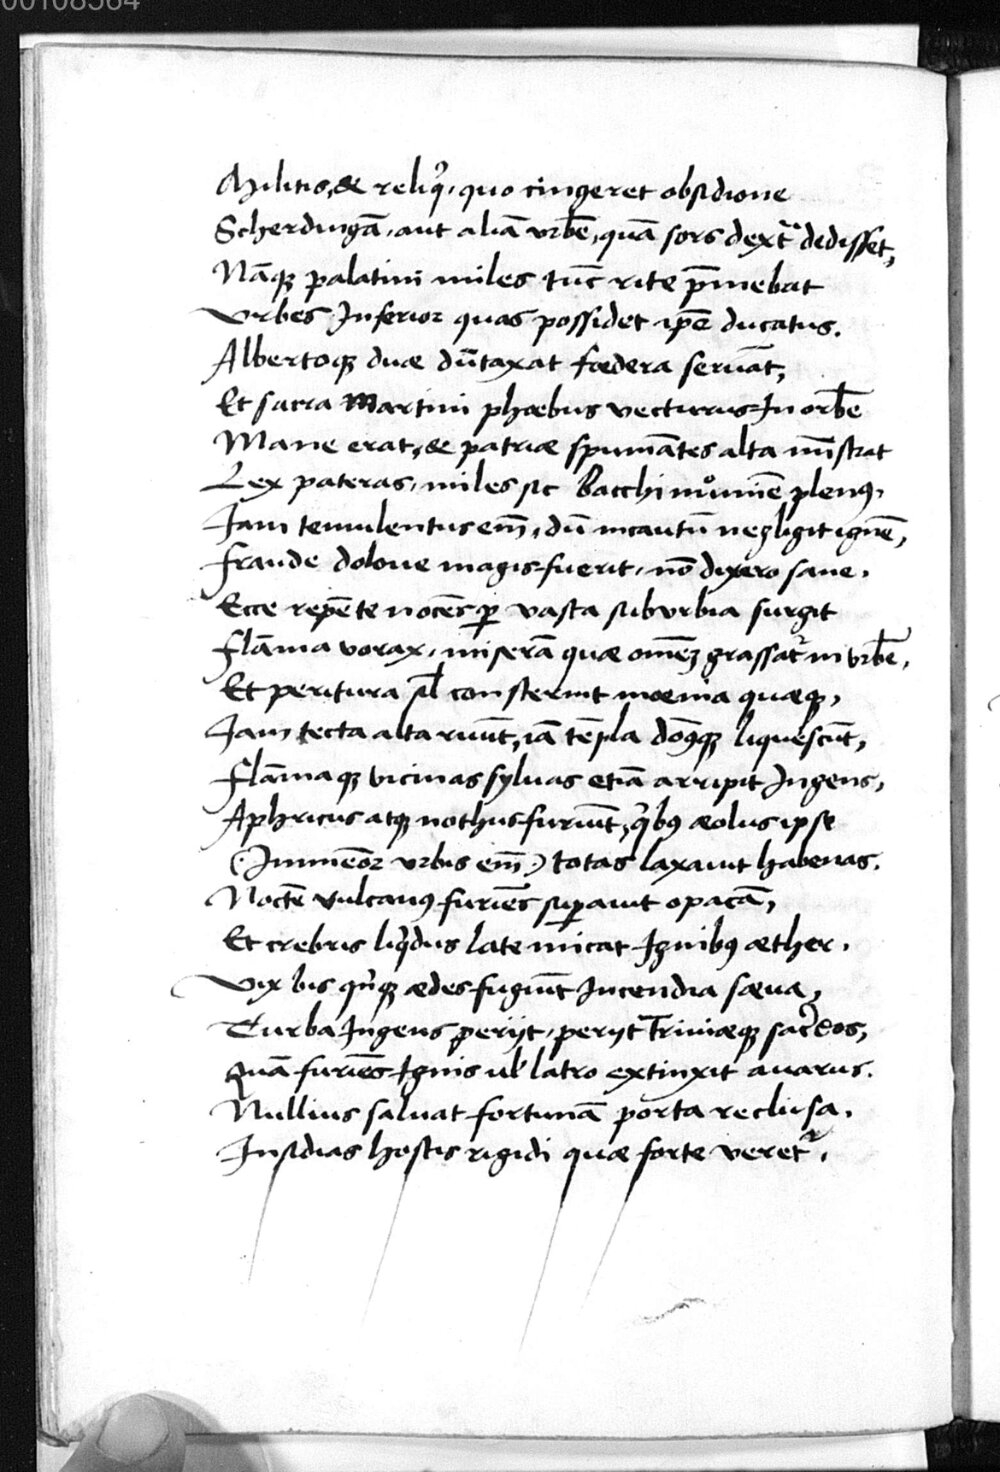 00108564
Militis, & reliq̃, quo cingeret obsidione
Scherdingã, aut aliã vrbẽ, quã sors dext̃ dedisset,
Nãq palatini miles tũc rite p̃mebat
Vrbes Inferior quas possidet ip̃e ducatus.
Albertoq duæ dũtaxat fœdera seruãt,
Et sacra Martini phœbus vecturus In orbẽ
Mane erat, & patriæ spumãtes alta mĩstrat
Lex pateras, miles sic Bacchi nůmiẽ plenꝰ,
Jam temulentus em̃, dũ incautũ negligit ignẽ,
Fraude doloue magis fuerit, nõ dixero sane.
Ecce repẽte nocẽs ꝑ vasta subvrbia surgit
Flãma vorax, miserã quæ om̃ẽ grassat̃ in vrbẽ,
Et peritura sĩl consternit mœnia quæq,
Jam tecta alta ruũt, iã tẽpla domꝰq liquescũt,
Flãmaq vicinas syluas etiã arripit Ingens,
Aphricus atq nothus furiũt, q̃bꝰ æolus ipse
(Immẽor vrbis em̃) totas laxauit habenas.
Noctẽ vulcanꝰ furiẽs suꝑauit opacã,
Et crebris liq̃dus late micat Ignibꝰ æther.
Vix bis qñq ædes fugiũt Incendia sæua,
Turba Ingens perijt, perijt Triuiæq sac̃dos,
Quã furiẽs Ignis ul̃ latro extinxit auarus.
Nullius saluat fortunã porta reclusa.
Insidias hostis rigidi quæ forte veret̃.